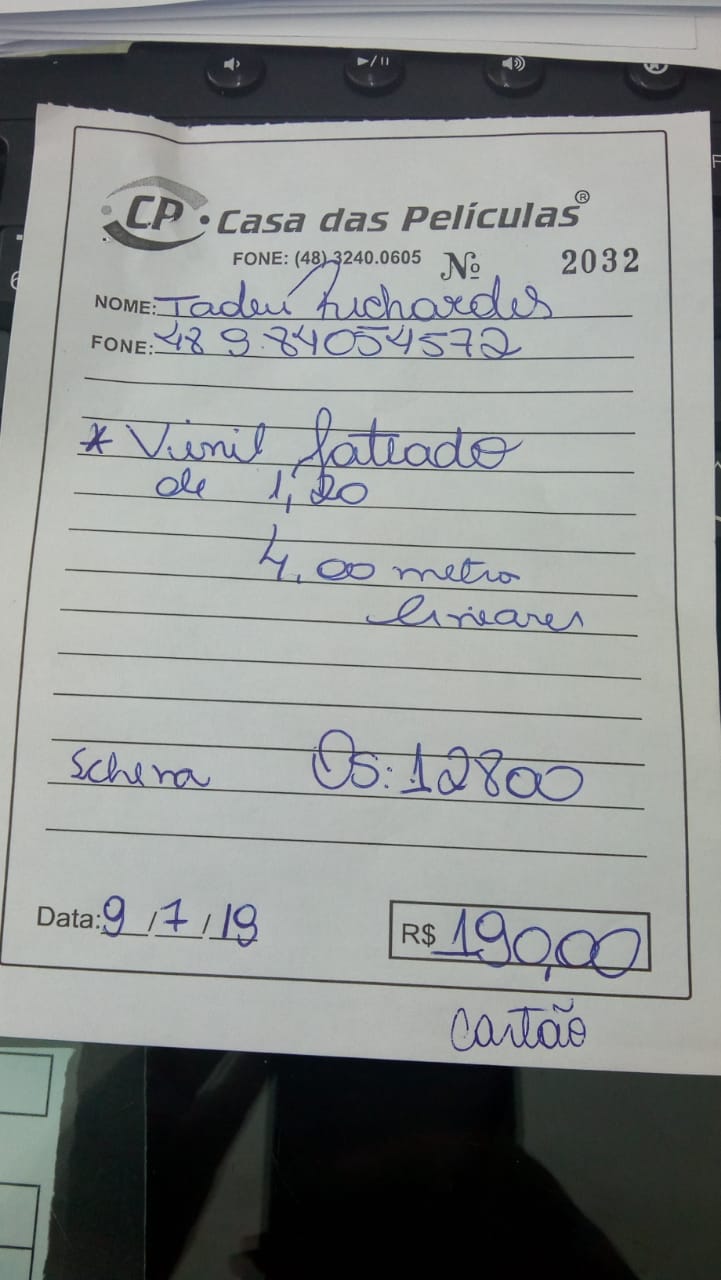 CP • Casa das Películas®
FONE: (48) 3240.0605 Nº 2032
NOME: Tadeu Richardes
FONE: 48 9.84054572
* Vinil fateado
de 1,20
4,00 metro
lineares
Schena Os: 12800
Data: 9/7/19 R$ 190,00
cartão